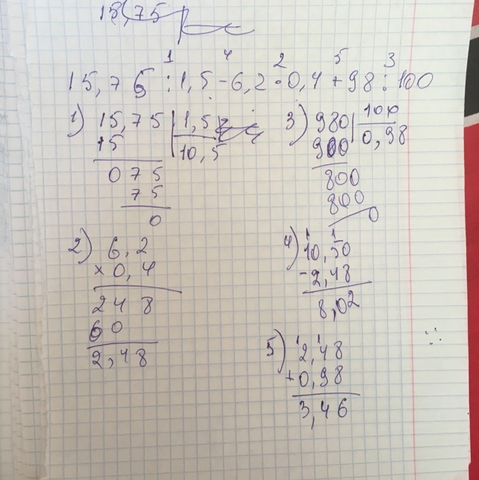 15,75
1 4 2 5 3
15,76 : 1,5 - 6,2 · 0,4 + 98 : 100
1) 15,75 | 1,5
15 | 10,5
075
75
0
2) 6,2
× 0,4
248
60
2,48
3) 980 | 100
900 | 0,98
800
800
0
4) 10,50
- 2,48
8,02
5) 2,48
+ 0,98
3,46